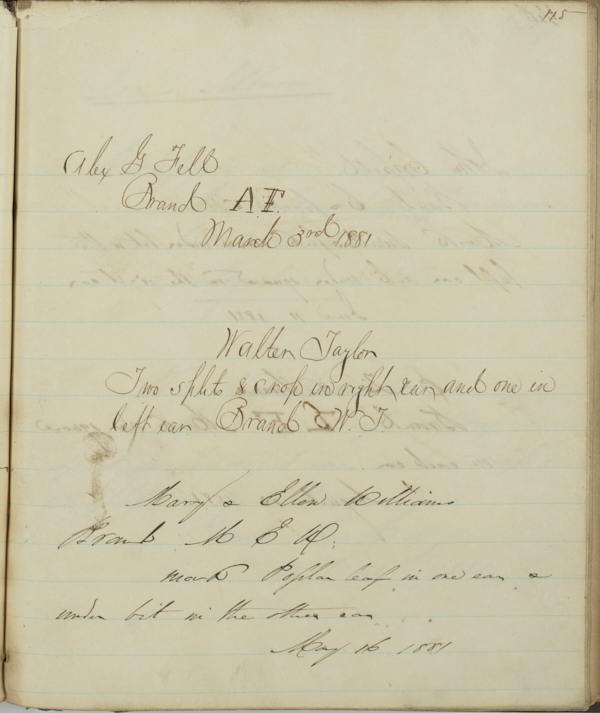 115
Alex G Fell
Brand AF.
March 3rd 1881
Walter Taylor
Two splits & crop in right ear and one in
left ear Brand W. T.
Mary & Ellen Williams
Brand M E W.
mark Poplar leaf in one ear &
under bit in the other ear
May 16 1881